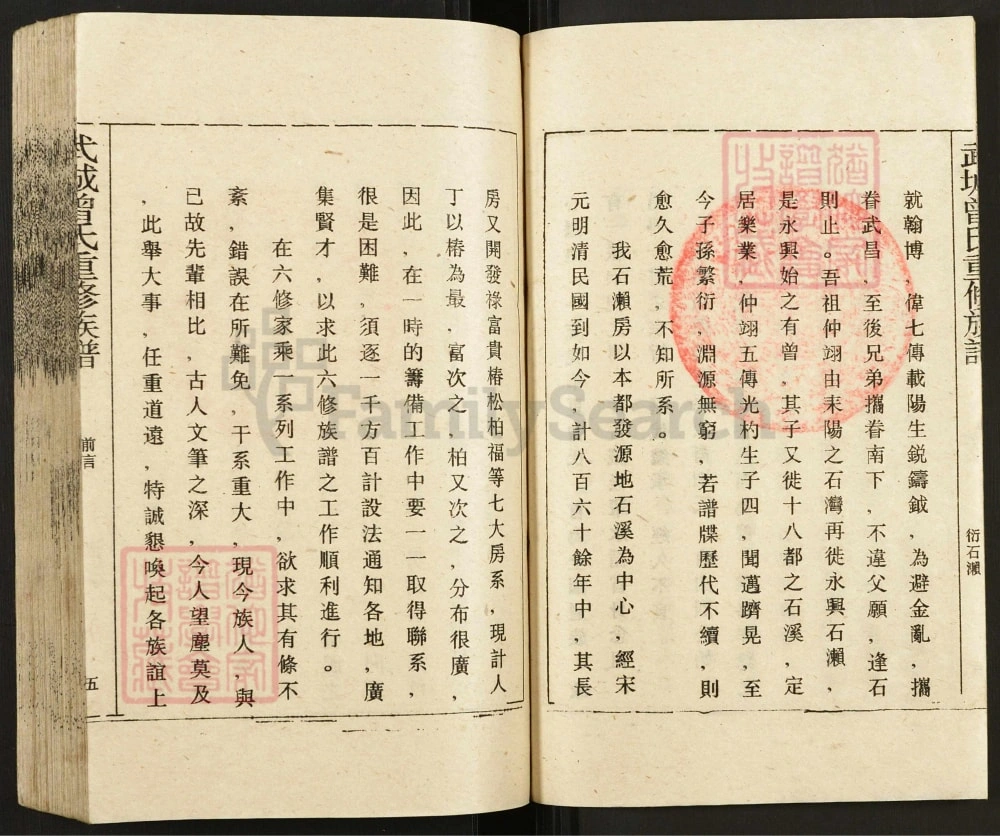 武城曾氏重修族譜
衍石瀨
就翰博,偉七傳載陽生銳鑄鉞,為避金亂,攜
眷武昌,至後兄弟攜眷南下,不違父願,逢石
則止。吾祖仲翊由耒陽之石灣再徙永興石瀨,
是永興始之有曾,其子又徙十八都之石溪,定
居樂業,仲翊五傳光杓生子四,聞邁躋晃,至
今子孫繁衍,淵源無窮,若譜牒歷代不續,則
愈久愈荒,不知所系。
我石瀨房以本都發源地石溪為中心,經宋
元明清民國到如今,計八百六十餘年中,其長
房又開發祿富貴椿松柏福等七大房系,現計人
丁以椿為最,富次之,柏又次之,分布很廣,
因此,在一時的籌備工作中要一一取得聯系,
很是困難,須逐一千方百計設法通知各地,廣
集賢才,以求此六修族譜之工作順利進行。
在六修家乘一系列工作中,欲求其有條不
紊,錯誤在所難免,干系重大,現今族人,與
已故先輩相比,古人文筆之深,今人望塵莫及
,此舉大事,任重道遠,特誠懇喚起各族誼上
武城曾氏重修族譜
前言
五
FamilySearch